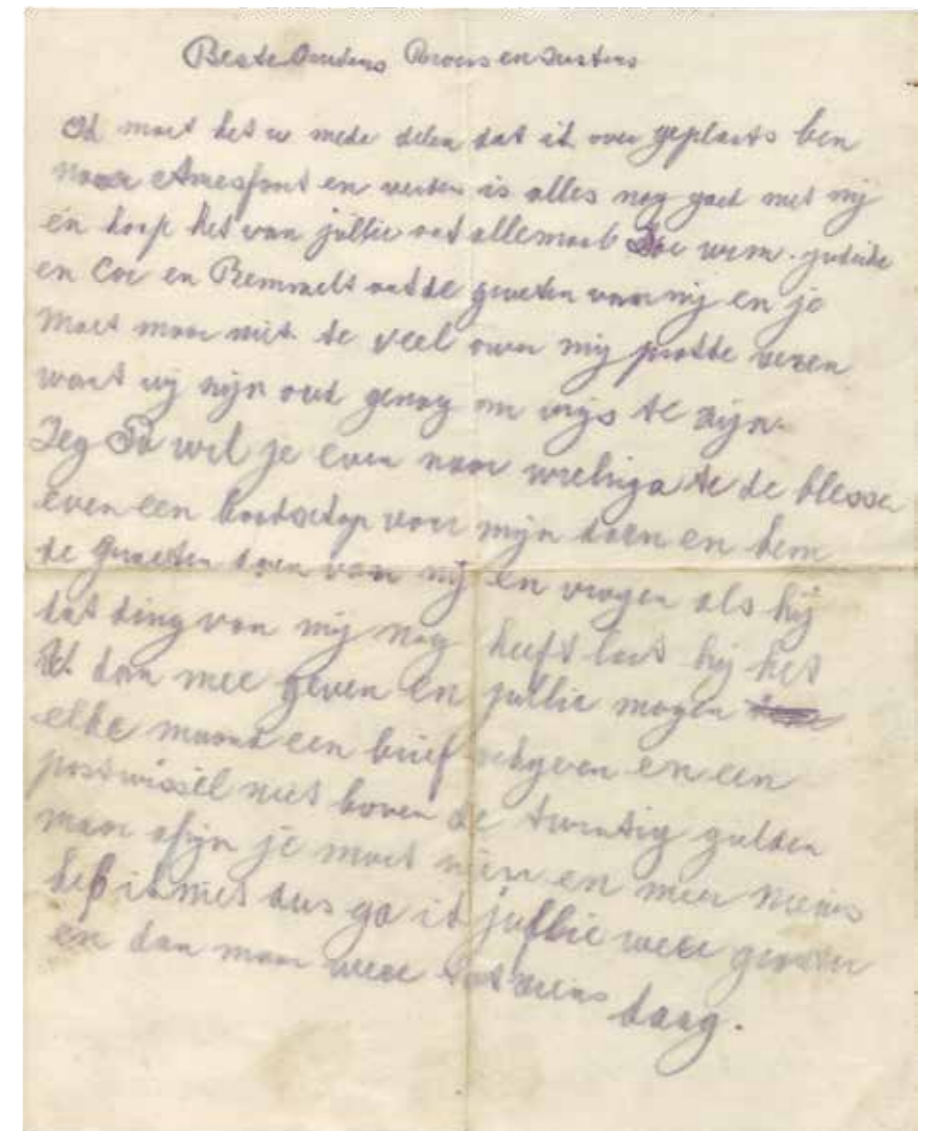 Beste Ouders Broers en Zusters
Ik moet het u mede delen dat ik over geplaats ben
naar Amesfoort en verder is alles nog goed met mij
en hoop het van jullie ook allemaal Doe wim
en Cor en Bemmelt de groeten van mij en je
Moet maar niet te veel over mij wezen
want wij zijn oud genog om wijs te zijn.
Zeg Pa wil je even naar te de blesse
even een boodschap voor mijn doen en hem
de Groeten doen van mij en vragen als hij
dat ding van mij nog heeft laat hij het
U dan mee geven en jullie mogen
elke maand een brief en een
postwissel niet boven de twintig gulden
maar afijn je moet zien en meer niews
heb ik niet dus ga ik jullie weer groeten
en dan maar weer tot ziens daag.